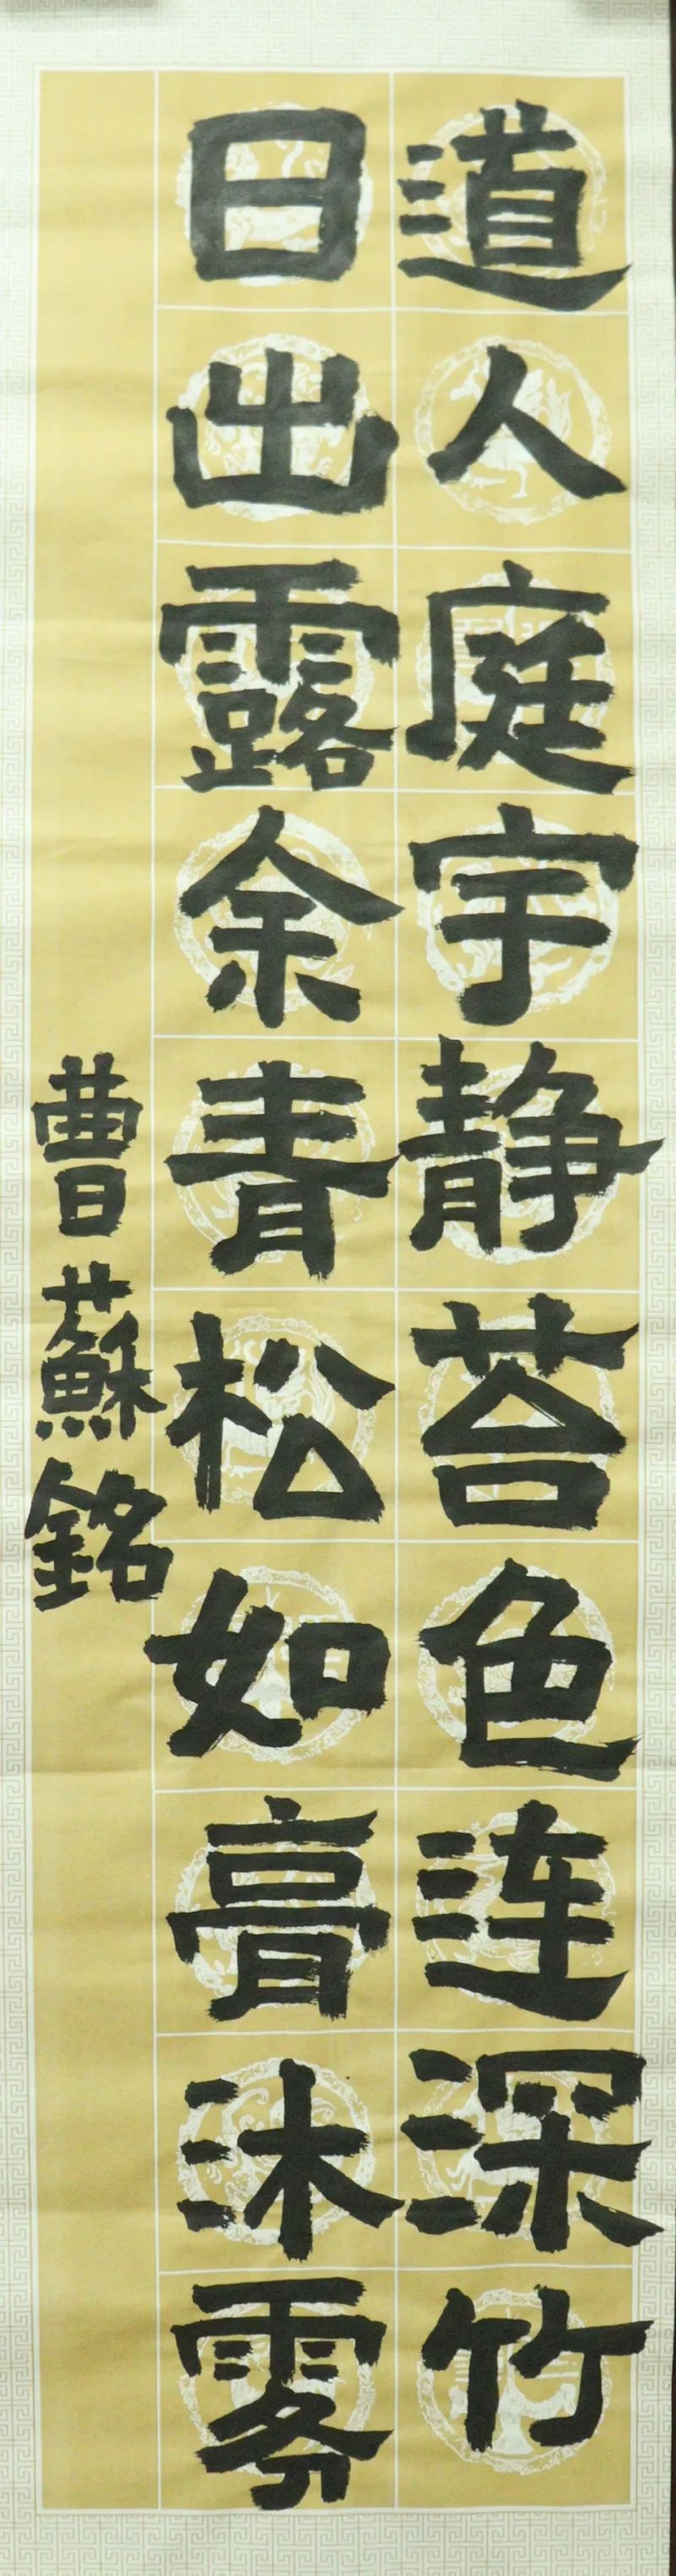 道人庭宇静苔色连深竹
日出露余青松如膏沐雾
曹蘇銘